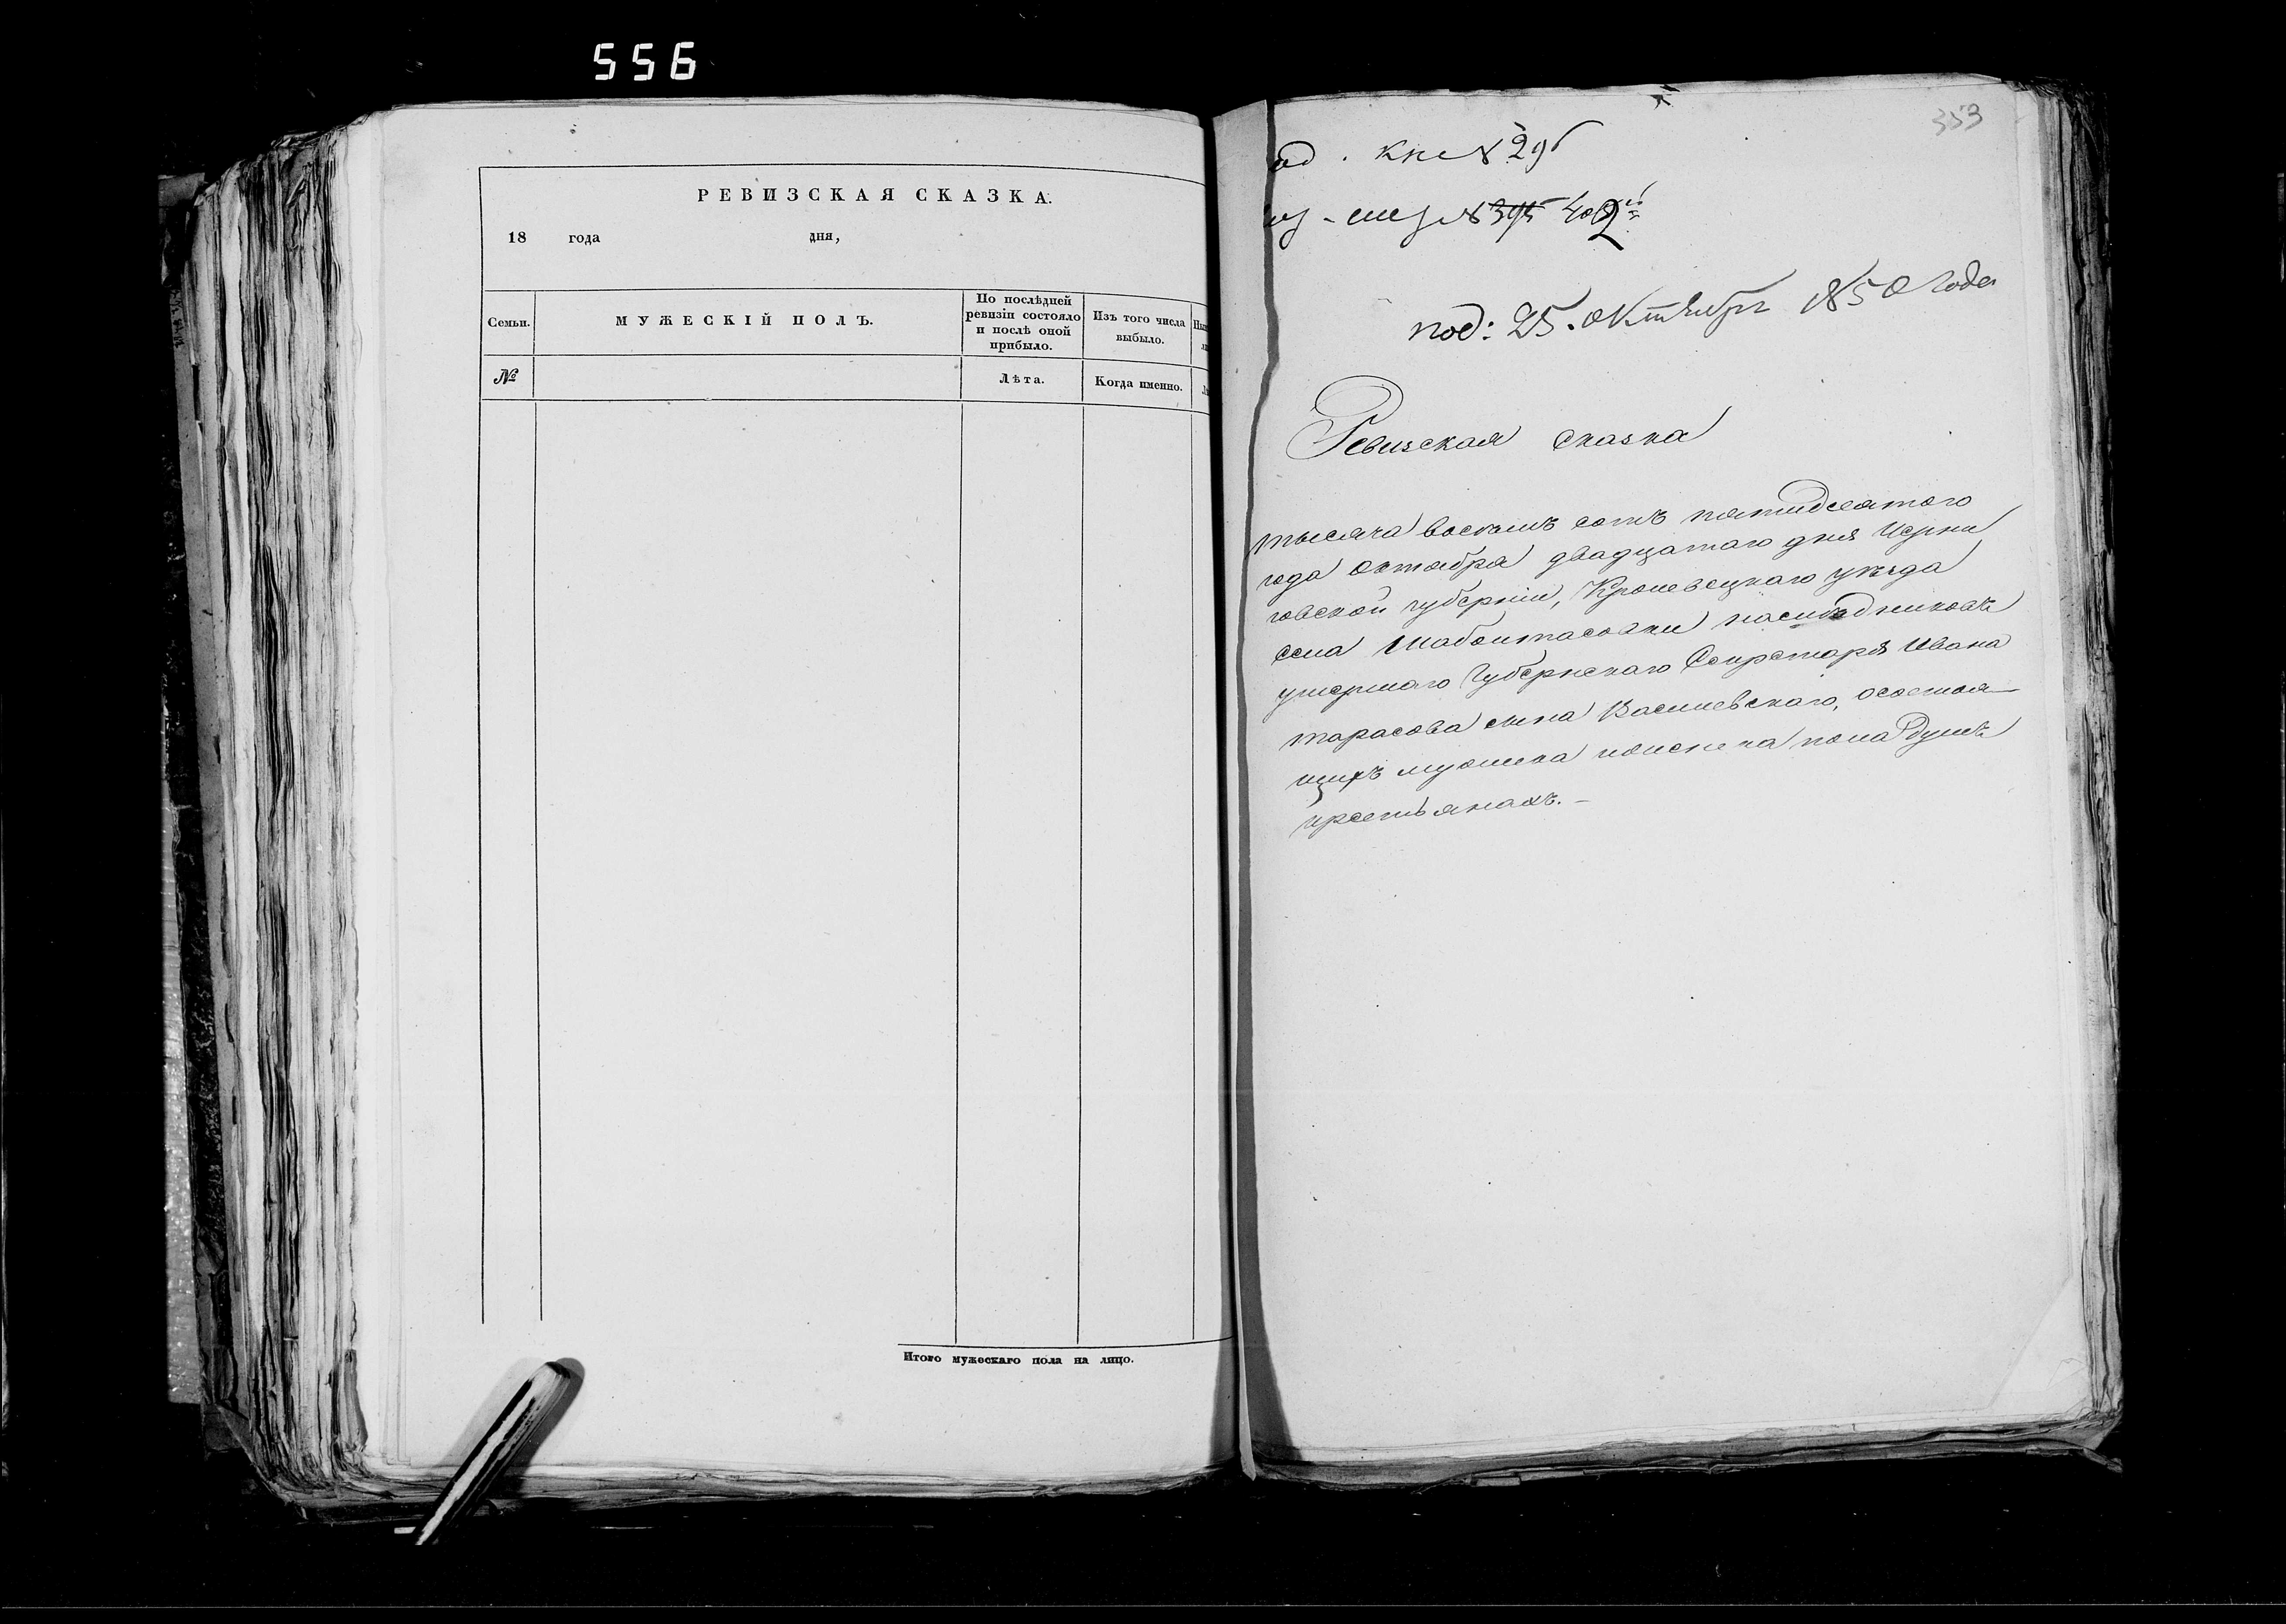 556
РЕВИЗСКАЯ СКАЗКА.
18 года дня,
Семьи.
МУЖЕСКІЙ ПОЛЪ.
По послѣдней
ревизіи состояло
и послѣ оной
прибыло.
Изъ того числа
выбыло.
№
Лѣта.
Когда именно.
Итого мужескаго пола на лицо.
353
кн № 296
402
под: 25. октября 1850 года
Ревизская сказка
тысяча восемь сотъ пятидесятого
года октября двадцатаго дня Черни
говской губерніи, Кролевецкаго уѣзда
села Шабалтасовки наследниковъ
умершаго Губернскаго Секретаря Ивана
тарасова сына Василевскаго, осостоя
щихъ мужеска и женска пола душъ
крестьянахъ. –